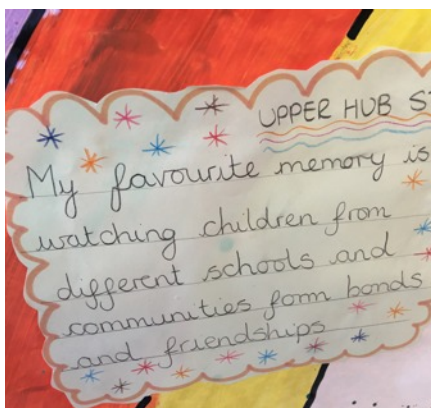 UPPER HUB S
My favourite memory is
watching children from
different schools and
communities form bonds
and friendships